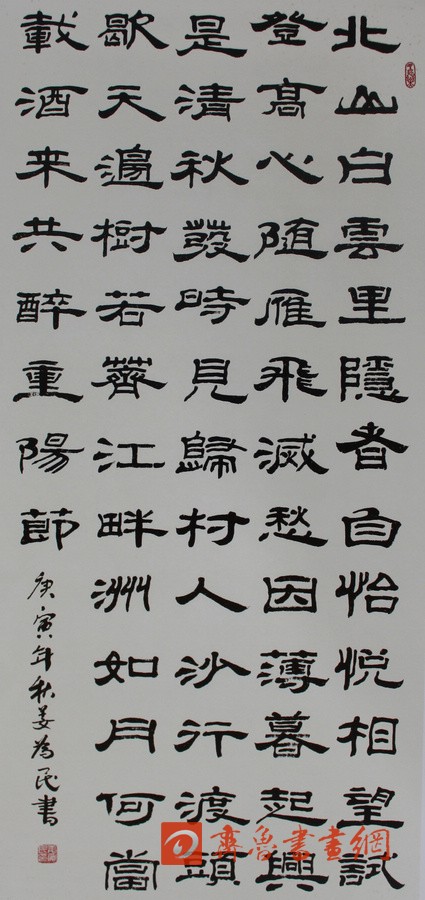 北山白雲里隱者自怡悅相望試
登高心随雁飛滅愁因薄暮起興
是清秋發時見歸村人沙行渡頭
歇天邊樹若薺江畔洲如月何當
載酒来共醉重陽節
庚寅年秋姜為民書
齊魯書畫網